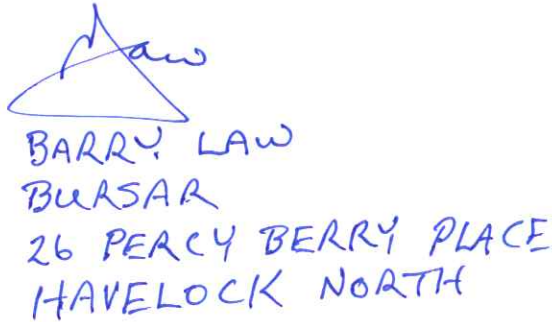 Law
BARRY LAW
BURSAR
26 PERCY BERRY PLACE
HAVELOCK NORTH